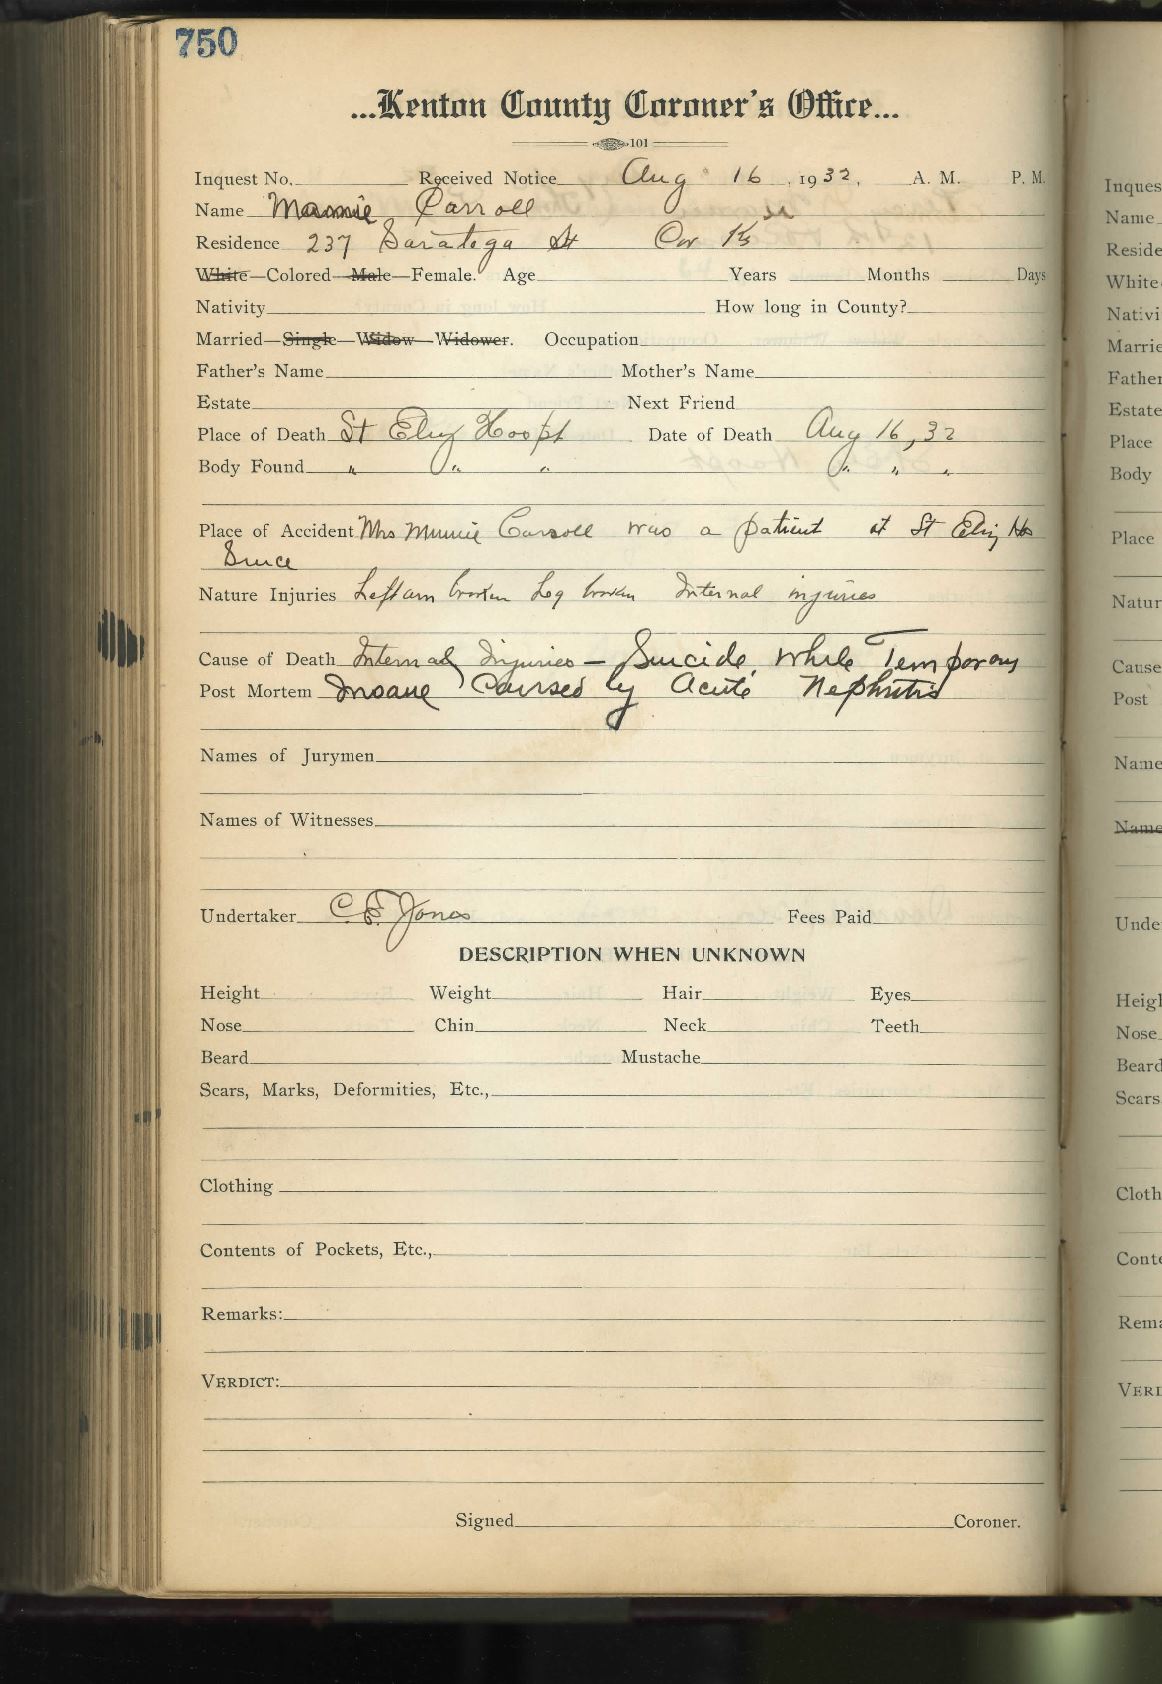 750
...Kenton County Coroner's Office...
101
Inquest No. Received Notice Aug 16, 1932, A. M. P. M.
Name Mamie Carroll
Residence 237 Saratoga St Cov Ky
White—Colored—Male—Female. Age Years Months Days
Nativity How long in County?
Married—Single—Widow—Widower. Occupation
Father's Name Mother's Name
Estate Next Friend
Place of Death St Eliz Hospt Date of Death Aug 16, 32
Body Found " " " " " "
Place of Accident Mrs Minnie Carroll was a patient at St Eliz Hos
Since
Nature Injuries Left arm broken Leg broken Internal injuries
Cause of Death Internal Injuries — Suicide, while Temporary
Post Mortem Insane Caused by Acute Nephritis
Names of Jurymen
Names of Witnesses
Undertaker C. E. Jones Fees Paid
DESCRIPTION WHEN UNKNOWN
Height Weight Hair Eyes
Nose Chin Neck Teeth
Beard Mustache
Scars, Marks, Deformities, Etc.,
Clothing
Contents of Pockets, Etc.,
Remarks:
VERDICT:
Signed Coroner.
Inques
Name
Reside
White
Nativi
Marrie
Father
Estate
Place
Body
Place
Natur
Cause
Post
Name
Name
Unde
Heigh
Nose
Beard
Scars
Cloth
Conte
Rema
VERD